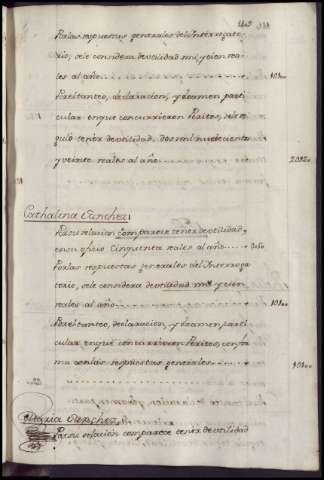 Por las respuestas generales del Ynterrogato-
rio, se le considera de utilidad mil, y cien rea-
les al año
Por el tanteo, declaracion, y examen parti-
cular en que concurrieron Peritos, se le
de utilidad, dos mil nuebecientos
y veinte reales al año
Cathalina Sanchez
Por su relacion comparece tener de utilidad,
en su oficio Cinquenta reales al año
Por las respuestas generales del Ynterroga-
torio, se le considera de utilidad mil y cien
reales al año
Por el tanteo, declaracion, y examen parti-
cular en que concurrieron Peritos, confor-
ma con las respuestas generales
Maria Sanchez
Por su relacion comparece tener de utilidad